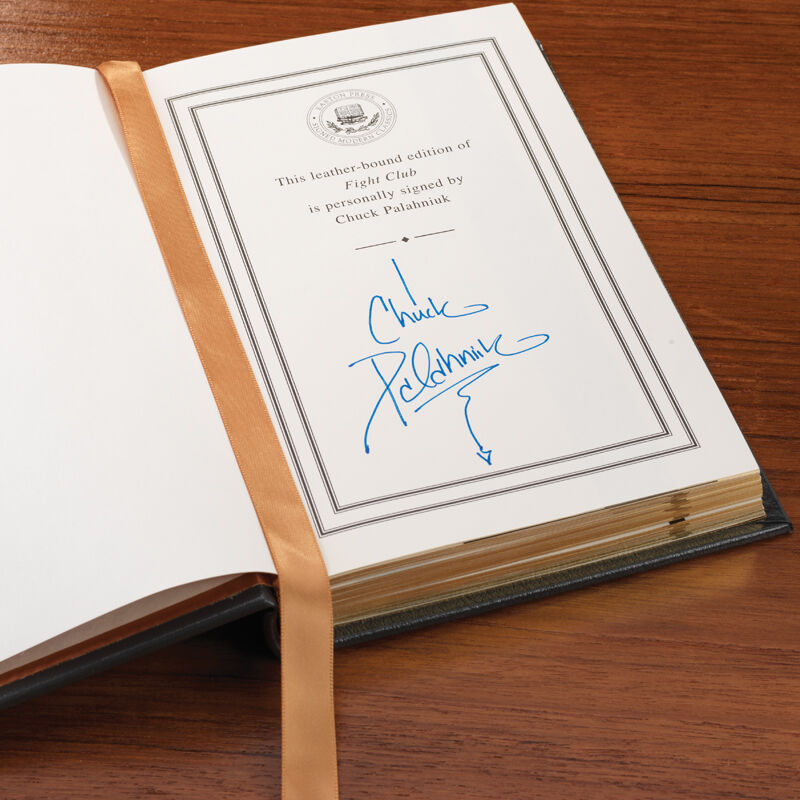 EASTON PRESS
SIGNED MODERN CLASSICS
This leather-bound edition of
Fight Club
is personally signed by
Chuck Palahniuk
Chuck
Palahniuk